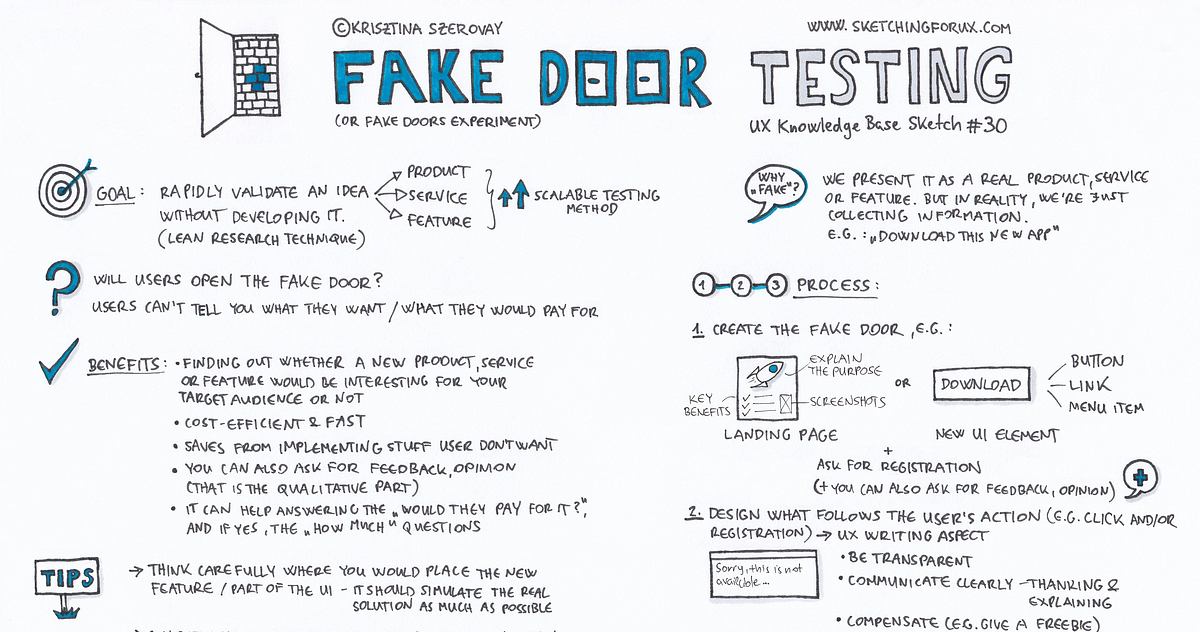 ©KRISZTINA SZEROVAY
WWW.SKETCHINGFORUX.COM
FAKE DOOR TESTING
(OR FAKE DOORS EXPERIMENT)
UX Knowledge Base Sketch #30
GOAL: RAPIDLY VALIDATE AN IDEA
WITHOUT DEVELOPING IT.
(LEAN RESEARCH TECHNIQUE)
PRODUCT
SERVICE
FEATURE
SCALABLE TESTING
METHOD
WILL USERS OPEN THE FAKE DOOR?
USERS CAN'T TELL YOU WHAT THEY WANT / WHAT THEY WOULD PAY FOR
BENEFITS: • FINDING OUT WHETHER A NEW PRODUCT, SERVICE
OR FEATURE WOULD BE INTERESTING FOR YOUR
TARGET AUDIENCE OR NOT
• COST-EFFICIENT & FAST
• SAVES FROM IMPLEMENTING STUFF USER DON'T WANT
• YOU CAN ALSO ASK FOR FEEDBACK, OPINION
(THAT IS THE QUALITATIVE PART)
• IT CAN HELP ANSWERING THE „WOULD THEY PAY FOR IT?",
AND IF YES, THE „HOW MUCH" QUESTIONS
TIPS
→ THINK CAREFULLY WHERE YOU WOULD PLACE THE NEW
FEATURE / PART OF THE UI - IT SHOULD SIMULATE THE REAL
SOLUTION AS MUCH AS POSSIBLE
WHY
„FAKE"?
WE PRESENT IT AS A REAL PRODUCT, SERVICE
OR FEATURE. BUT IN REALITY, WE'RE JUST
COLLECTING INFORMATION.
E.G.: „DOWNLOAD THIS NEW APP"
1 2 3 PROCESS:
1. CREATE THE FAKE DOOR, E.G.:
EXPLAIN
THE PURPOSE
KEY
BENEFITS
SCREENSHOTS
LANDING PAGE
OR
DOWNLOAD
BUTTON
LINK
MENU ITEM
NEW UI ELEMENT
+
ASK FOR REGISTRATION
(+ YOU CAN ALSO ASK FOR FEEDBACK, OPINION)
2. DESIGN WHAT FOLLOWS THE USER'S ACTION (E.G. CLICK AND/OR
REGISTRATION) → UX WRITING ASPECT
Sorry, this is not
available...
• BE TRANSPARENT
• COMMUNICATE CLEARLY - THANKING &
EXPLAINING
• COMPENSATE (E.G. GIVE A FREEBIE)